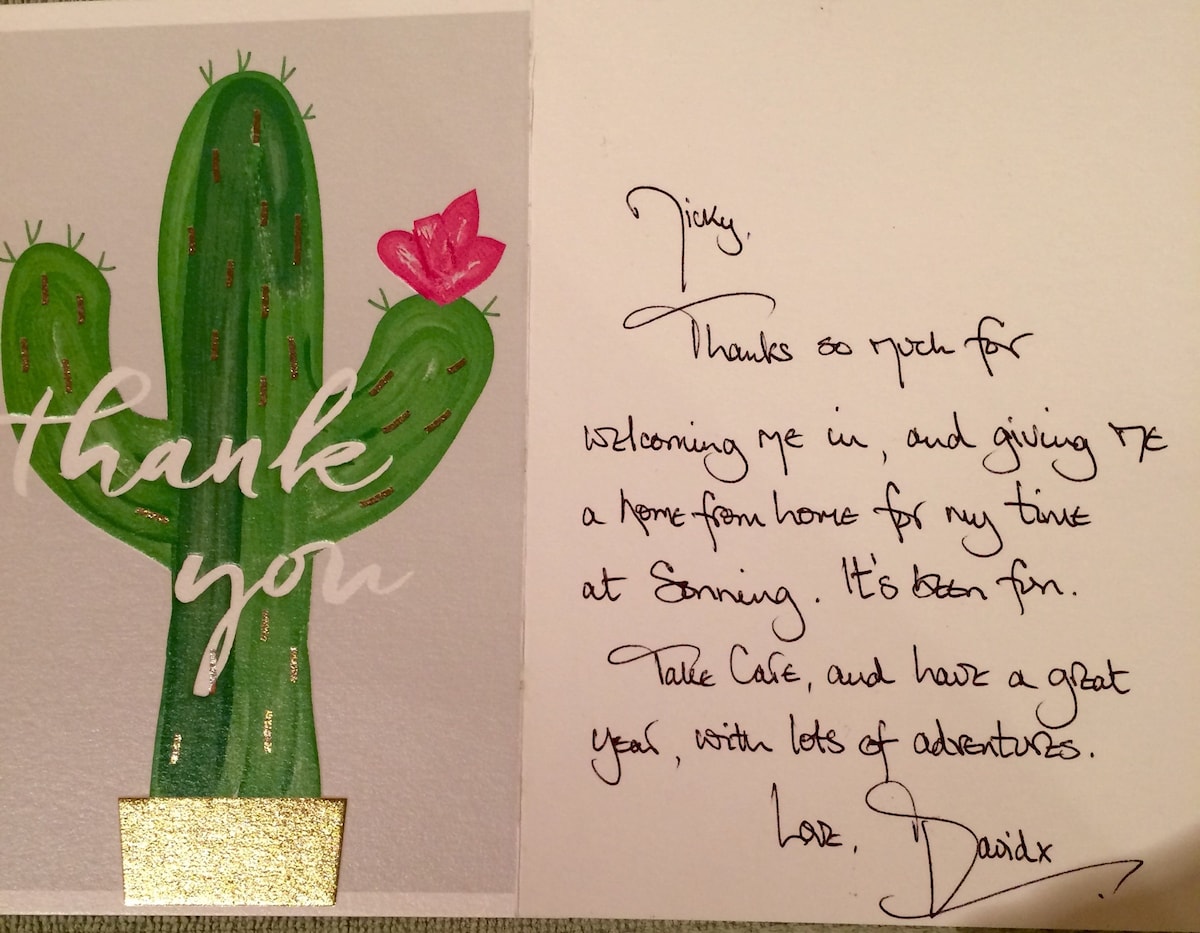 thank
you
Nicky,
Thanks so much for
welcoming me in, and giving me
a home from home for my time
at Sonning. It's been fun.
Take Care, and have a great
year, with lots of adventures.
Love, David x